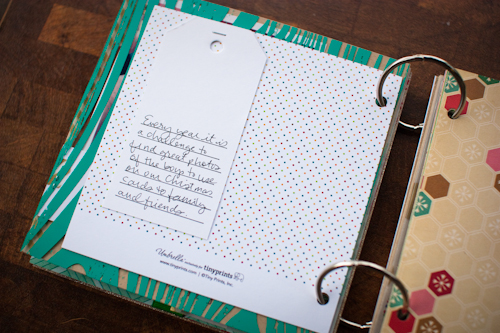 Every year it is
a challenge to
find great photos
of the boys to use
on our Christmas
cards to family
and friends.
Umbrella
tinyprints
www.tinyprints.com | ©Tiny Prints, Inc.